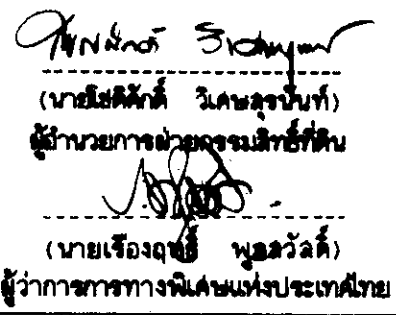 (นายโชติศักดิ์ วิเศษสุรนันท์)
ผู้อำนวยการฝ่ายกรรมสิทธิ์ที่ดิน
(นายเรืองฤทธิ์ พูลสวัสดิ์)
ผู้ว่าการการทางพิเศษแห่งประเทศไทย